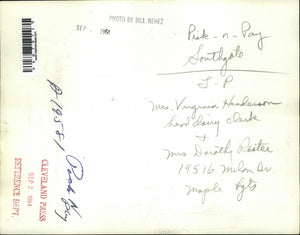 PHOTO BY BILL NEHEZ
SEP 1964
Pick-n-Pay
Southgate
J-P
Mrs. Virginia Henderson
head dairy clerk
+
Mrs. Dorothy
19516 Milan Dr.
Maple Hgts
P-19581
Pick Pay
CLEVELAND PRESS
SEP 2 1964
REFERENCE DEPT.